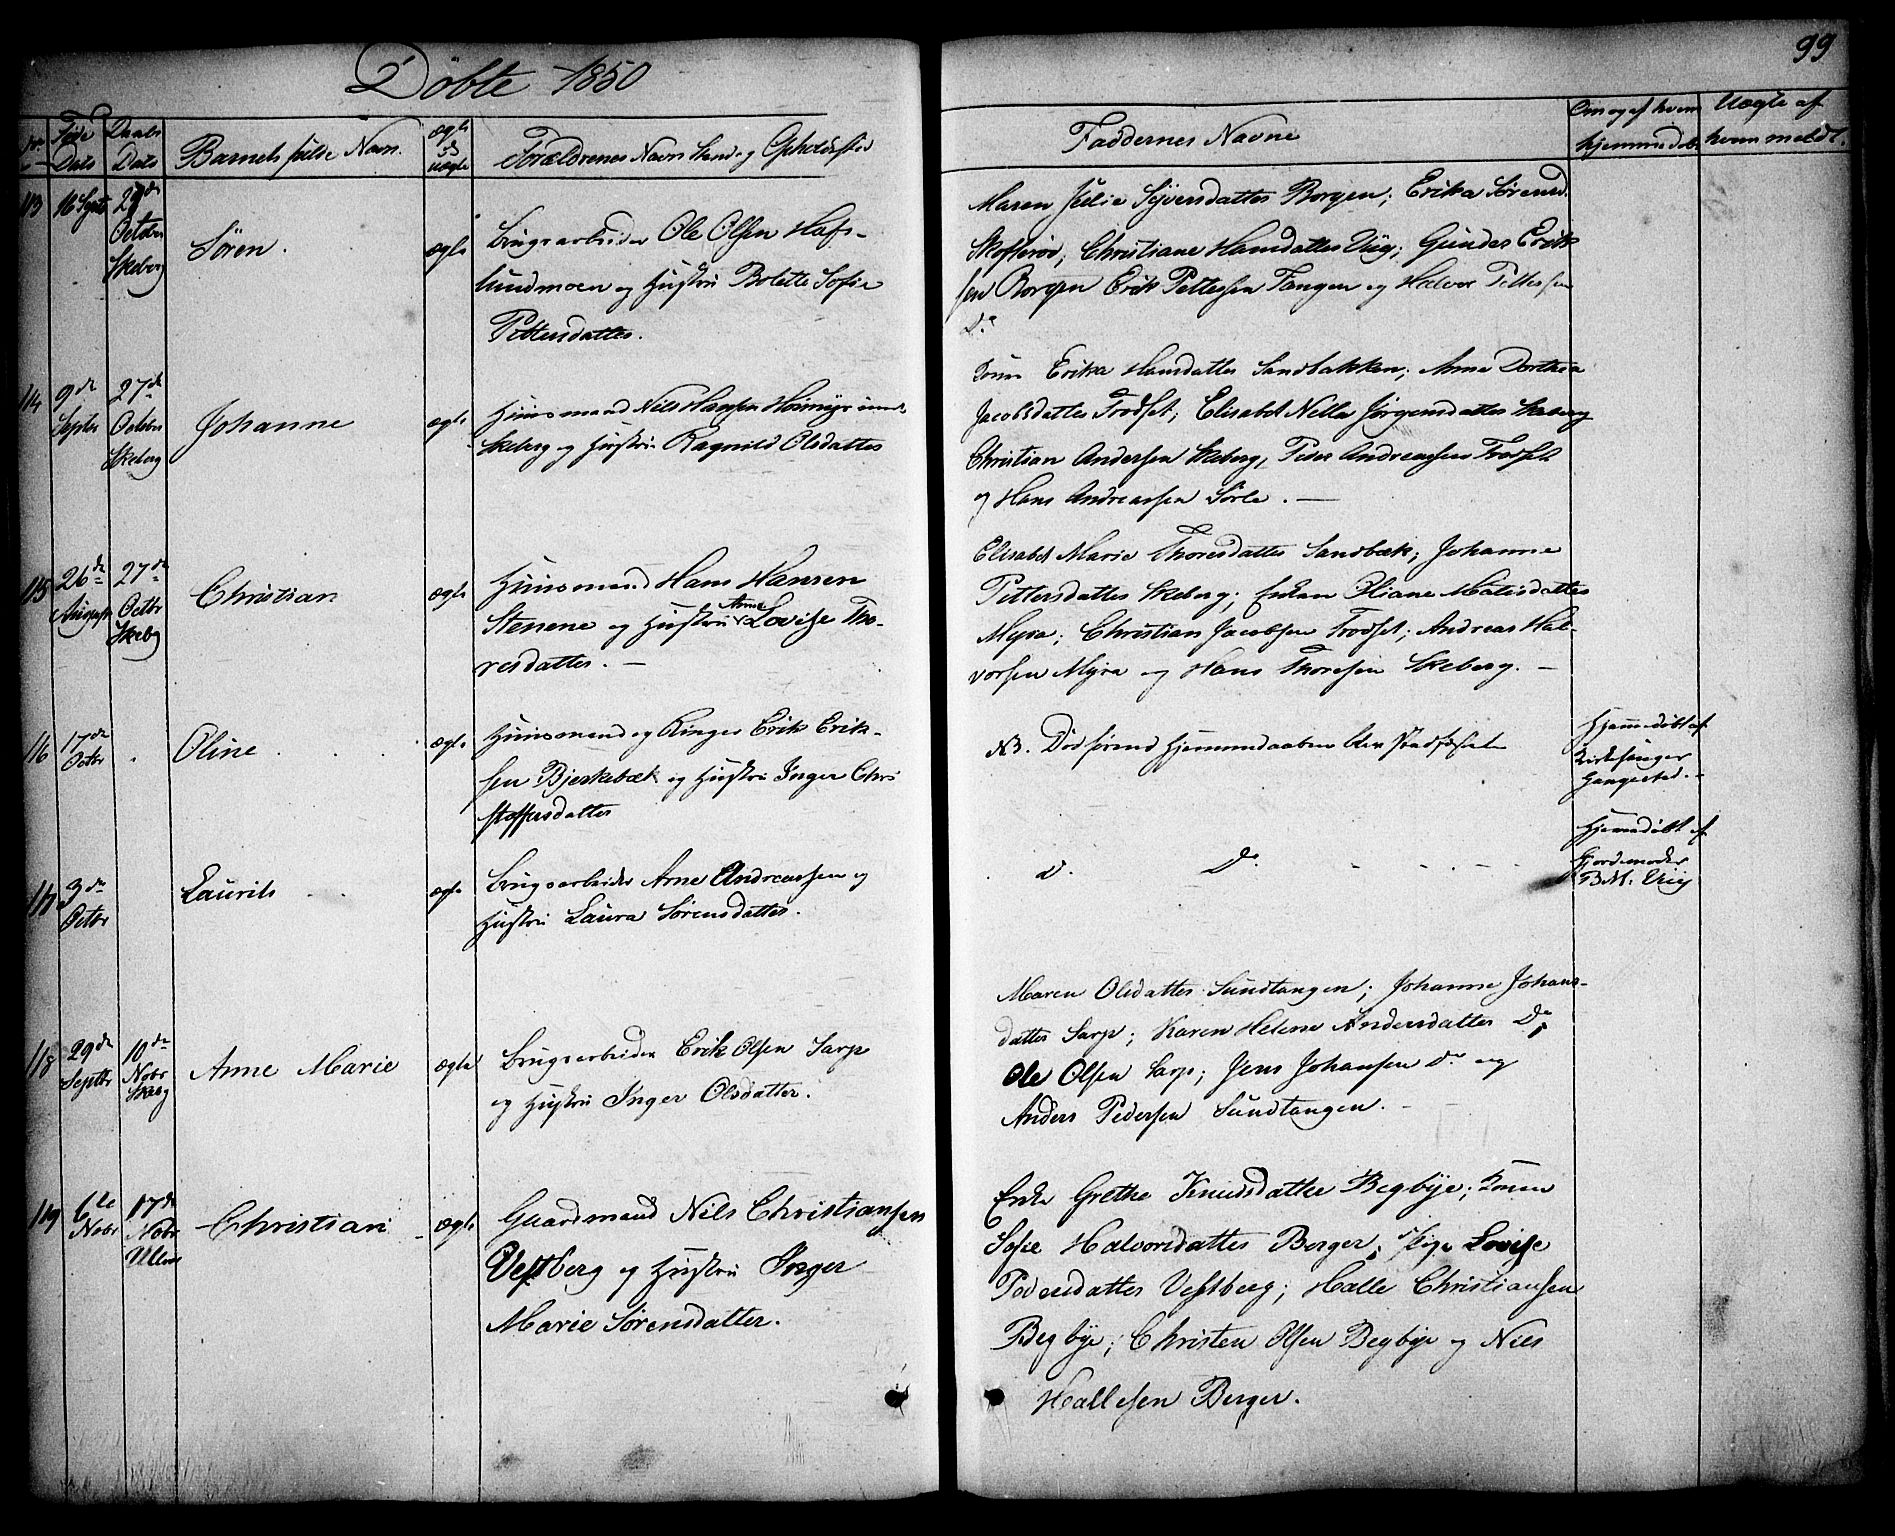 Döbte 1850
99
Føde Dats
Daabs Dats
Barnets fulde Navn.
ægte ud uægte
Forældrenes Navn Stand og Opholdssted
Faddernes Navne
Om og af hvem hjemmedøbt
Uægte af hvem meldt.
113
16 Septr
29de October Skeberg
Sören.
ægte
Brugsarbeider Ole Olsen Hafs-
lundmoen og Hustru Bolette Sofie
Pettersdatter.
Maren Julie Syversdatter Borgen; Erika Sörensd.
Skofterød; Christiane Hansdatter Viig; Gunder Erik
sen Borgen Erik Pettersen Tangen og Halvor Pettersen
Do
114
9de Septer
27de October Skeberg
Johanne
ægte
Huusmand Nils Hansen Höimyr under
Skeberg og Hustru Ragnild Olsdatter
Konen Erika Hansdatter Sandbakken; Anne Dorthea
Jacobsdatter Trodset; Elisabet Nella Jörgensdatter Skeberg
Christian Andersen Skeberg, Peder Andreassen Trodset
og Hans Andreassen Sörle. —
115
26de August
27de Octbr Skebg
Christian
ægte
Huusmand Hans Hansen
Stenene og Hustru Anne Lovise Tho-
resdatter. —
Elisabet Marie Thoresdatter Sandbæk; Johanne
Pettersdatter Skeberg; Enken Oliane Matisdatter
Myra; Christian Jacobsen Trodset; Andreas Hal-
vorsen Myra og Hans Thoresen Skeberg. —
116
17de Octbr
Oline
ægte
Huusmand og Ringer Erik Erik-
sen Bjerkebæk og Hustru Inger Chri
stoffersdatter
NB. Död förend Hjemmedaaben blev stadfæstet
Hjemmedöbt af Kirkesanger Haugestad.
117
3de Octbr
Laurits
ægte
Brugsarbeider Arne Andreassen og
Hustru Laura Sörensdatter.
D. Do
Hjemedöbt af Gjordemoder B.M. Viig
118
29de Septbr
10de Nobr Skebg
Anne Marie
ægte
Brugsarbeider Erik Olsen Sarp
og Hustru Inger Olsdatter.
Maren Olsdatter Sundtangen; Johanne Johans-
datter Sarp; Karen Helene Andersdatter Do;
Ole Olsen Sarp; Jens Johansen Do og
Anders Pedersen Sundtangen. —
119
6te Nobr
17de Nobr Ullerø
Christian
ægte
Gaardmand Nils Christiansen
Vestberg og Hustru Inger
Marie Sörensdatter.
Enke Grethe Knudsdatter Begbye; Konen
Sofie Halvorsdatter Berger; Pige Lovise
Pedersdatter Vestberg; Halle Christiansen
Begbye; Christen Olsen Begbye og Nils
Hallesen Berger.